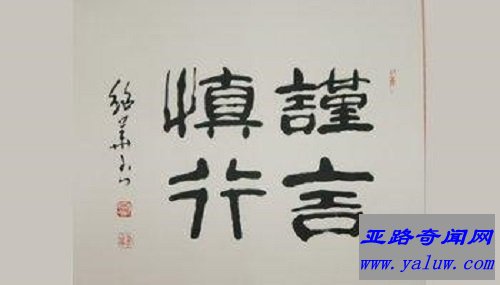 謹言
慎行
亚路奇闻网
www.yaluw.com